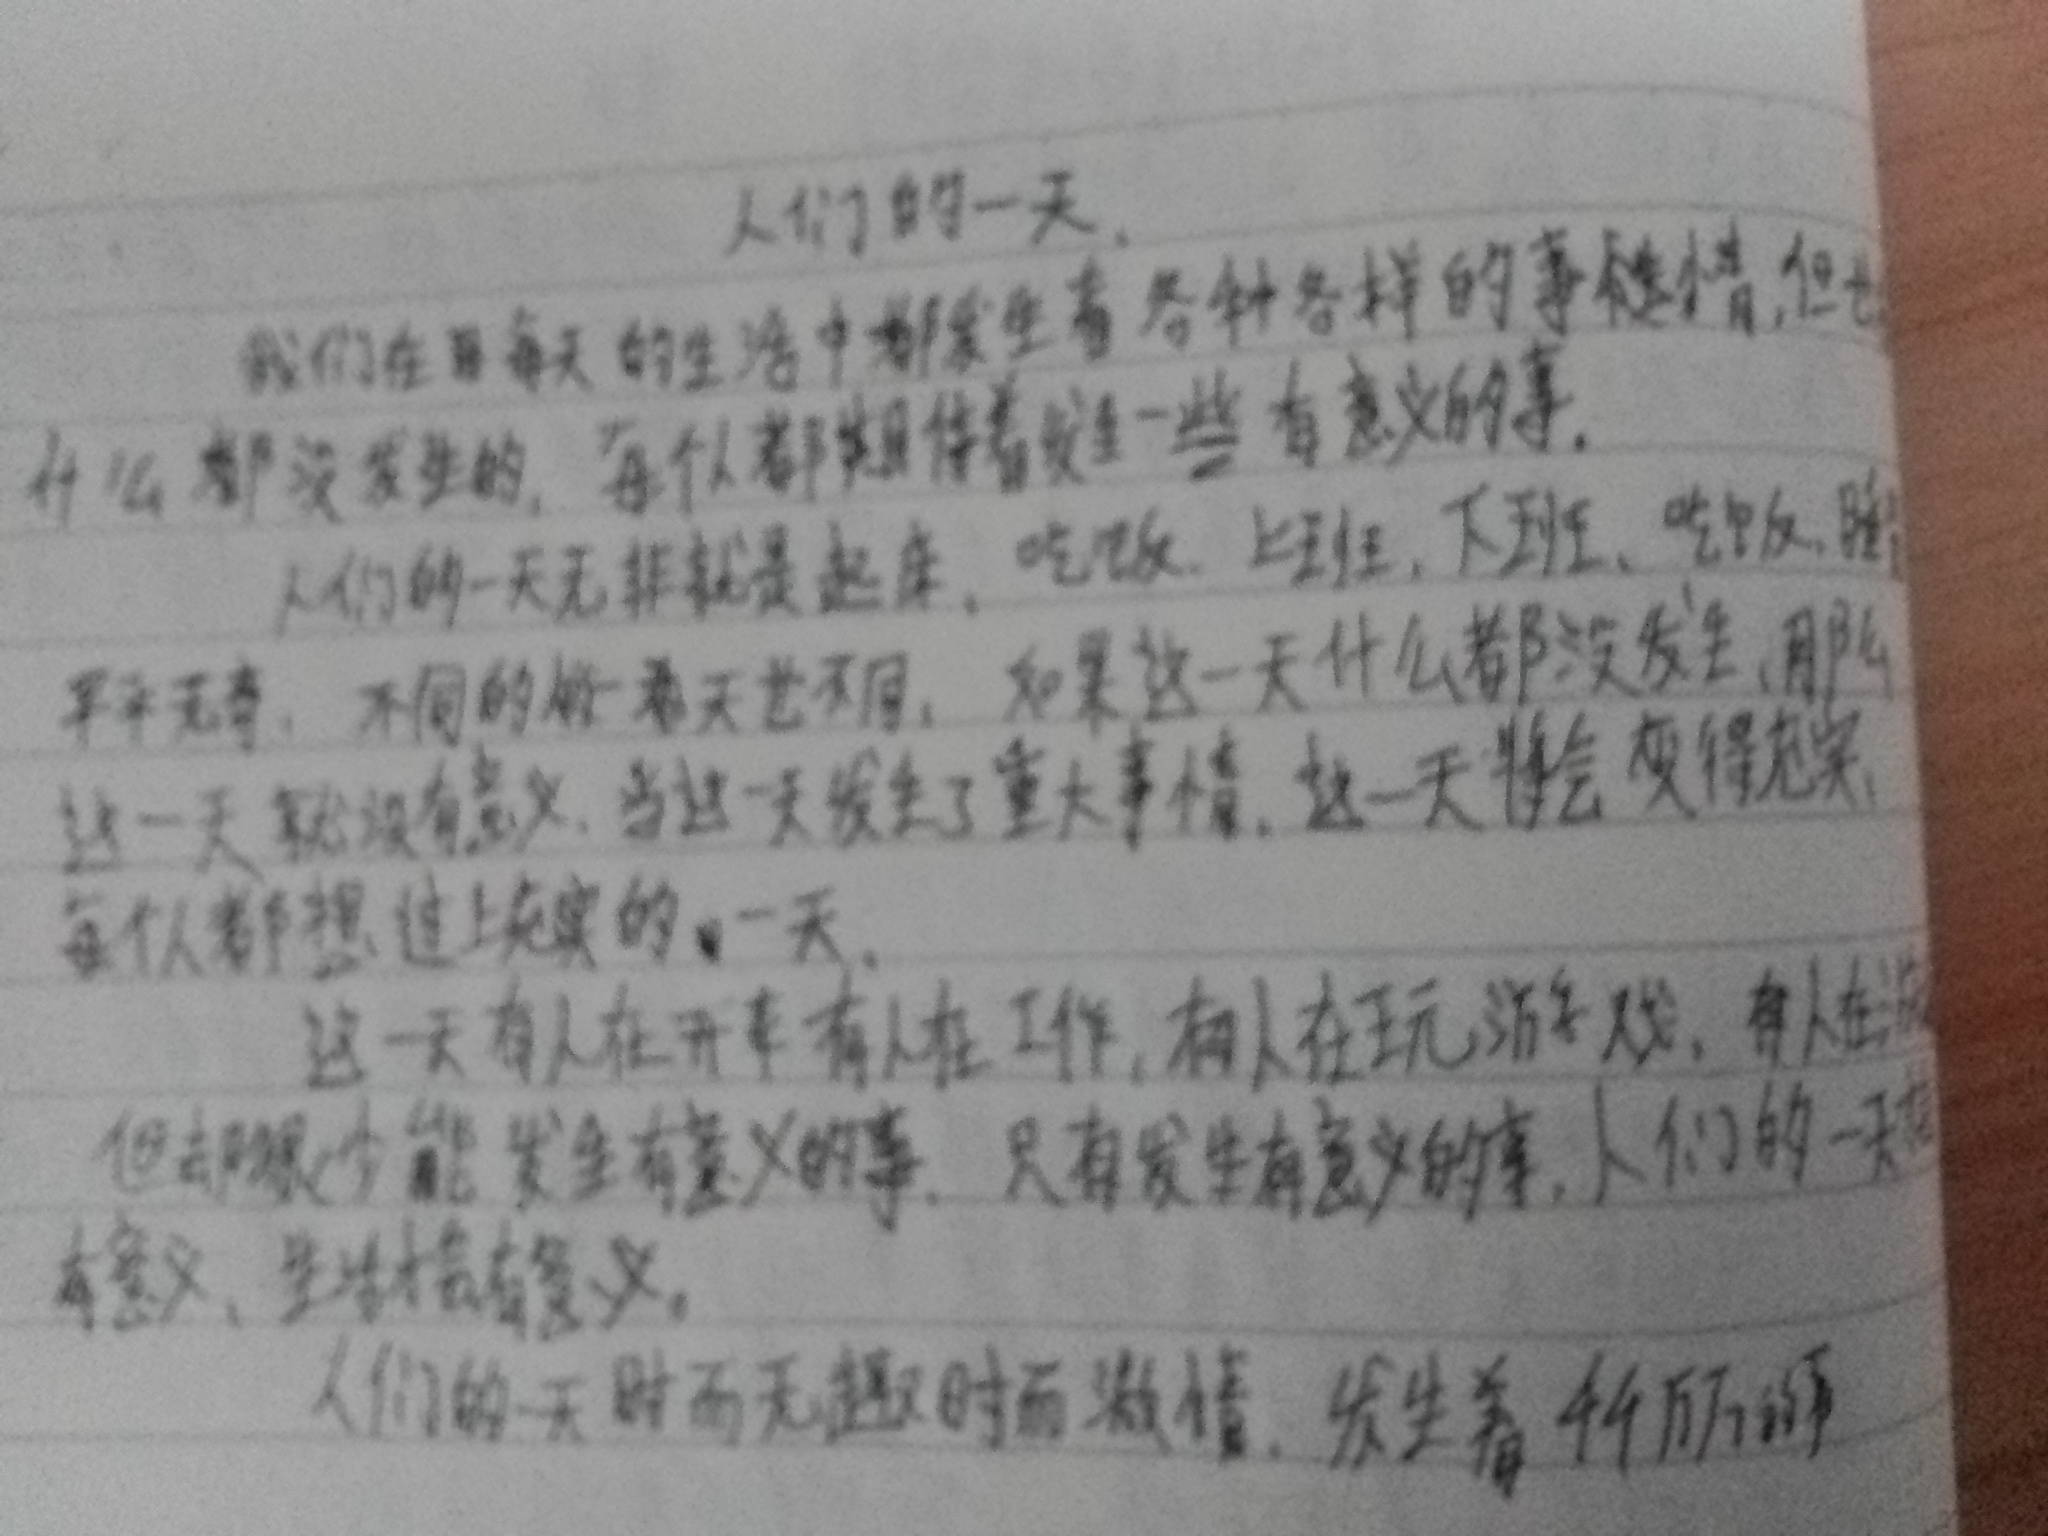 人们的一天.
我们在每天的生活中都发生着各种各样的事情,但也
什么都没发生的,每个人都期待着发生一些有意义的事.
人们的一天无非就是起床、吃饭、上班、下班、吃饭、睡
平平无奇,不同的每天也不同,如果这一天什么都没发生,那么
这一天就没有意义,当这一天发生了重大事情,这一天将会变得充实,
每个人都想过上充实的一天.
这一天有人在开车有人在工作,有人在玩游戏,有人在
但却很少能发生有意义的事,只有发生有意义的事,人们的一天
有意义,生活才有意义。
人们的一天时而无趣时而激情,发生着千千万万的事